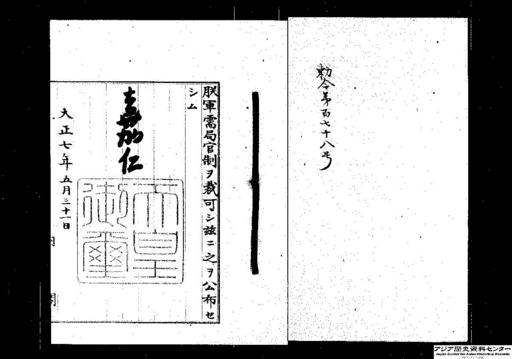 勅令第百七十八号
朕軍需局官制ヲ裁可シ茲ニ之ヲ公布セ
シム
嘉仁
天皇
御璽
大正七年五月三十一日
内閣
アジア歴史資料センター
Japan Center for Asian Historical Records